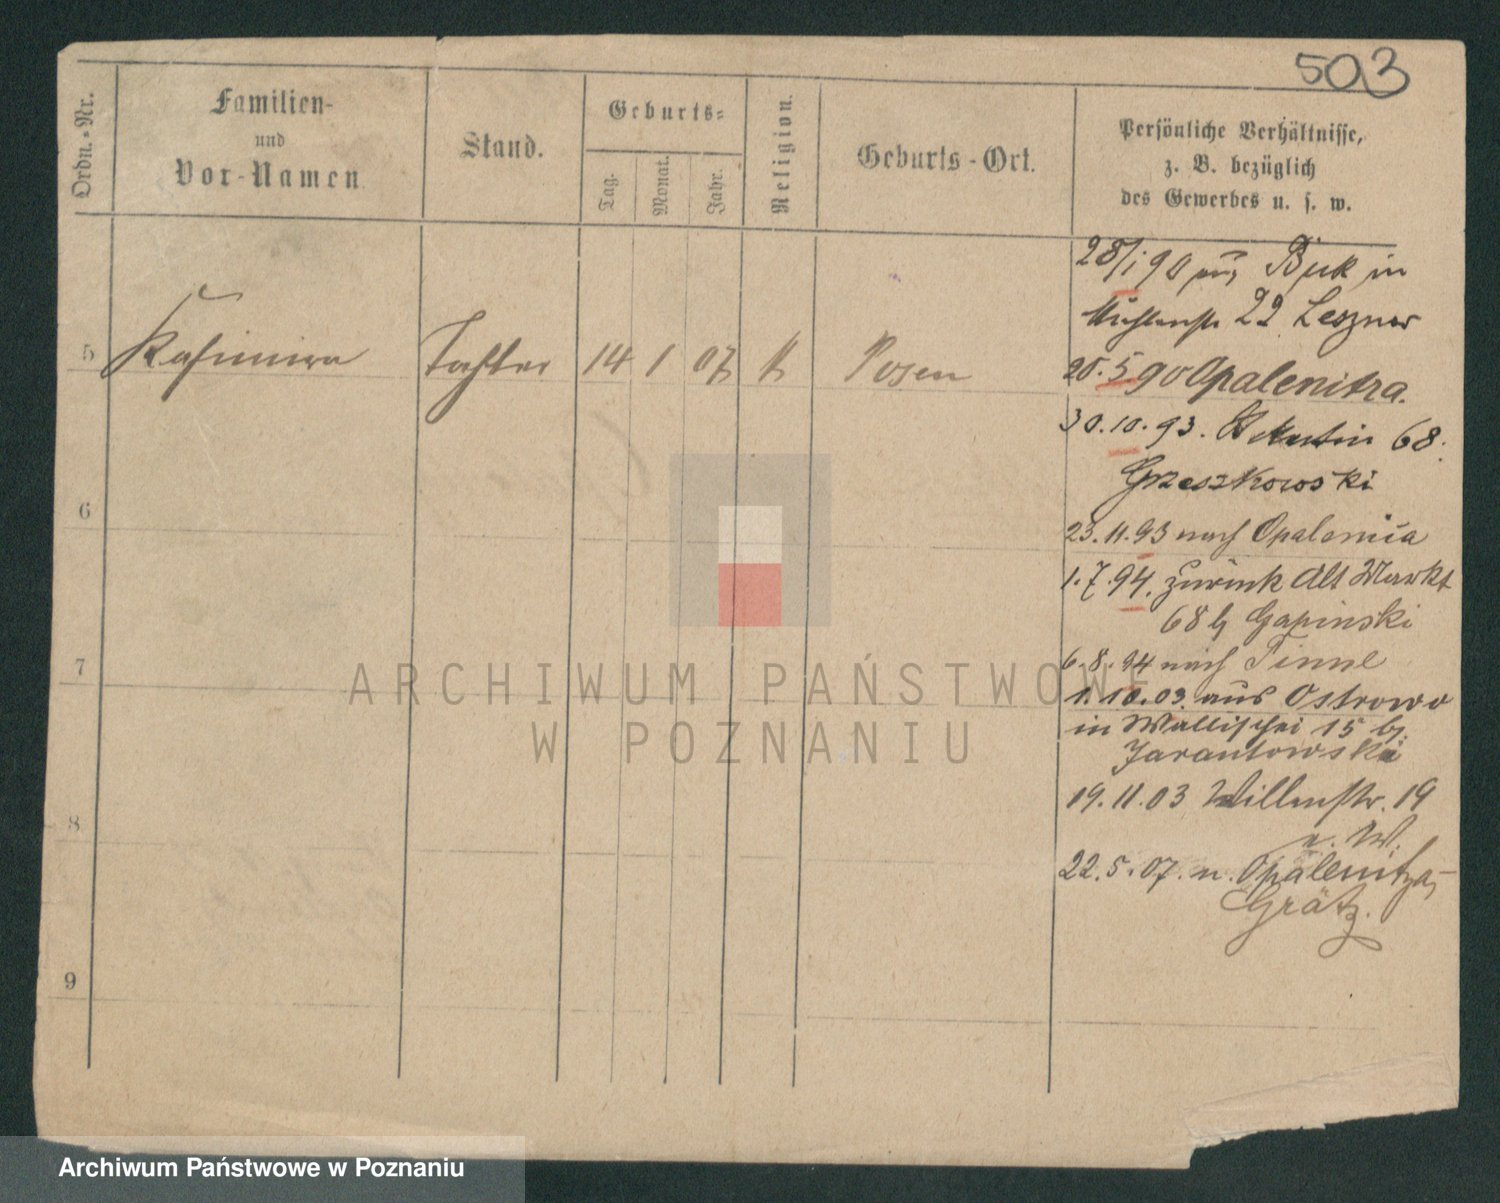 503
Ordn.=Nr.
Familien-
und
Vor-Namen
Stand.
Geburts=
Tag.
Monat.
Jahr.
Religion.
Geburts-Ort.
Persönliche Verhältnisse,
z. B. bezüglich
des Gewerbes u. s. w.
5 Kasimira Tochter 14 1 07 k Posen
6
7
8
9
28/1 90 aus Buk in
22
25.5 90 Opalenitza.
30.10.93. 68.
Grzeszkowski
23.11.93 nach Opalenica
1.7.94. zurück Alt Markt
68 b Gapinski
6.8.94 nach Pinne
1.10.03. aus Ostrowo
in Wallischei 15 b.
Jarantowski
19.11.03 19
n. W.
22.5.07. n. Opalenitza,
Grätz.
ARCHIWUM PAŃSTWOWE
W POZNANIU
Archiwum Państwowe w Poznaniu